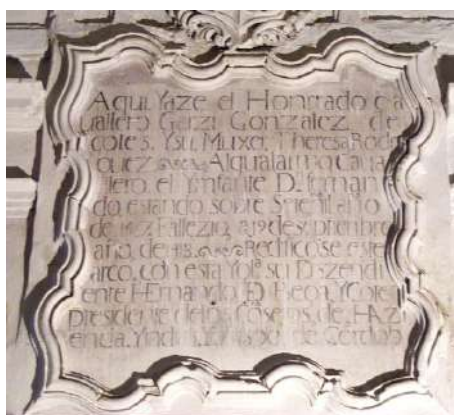 Aqui Yaze el Honrrado ca
uallero Garzi Gonzalez de
cotes Ysu Muxer Theresa Rodri
guez Alqual armo Caua
llero el Ynfante D. fernan
do estando sobre Setenil año
de 1407 Fallezio a 19 de septiembre
año de Redifico se este
arco con esta su Deszendi
ente HErnando D Leon Y Cotes
presidente de los de HAz
ienda Yndias de Cordoba